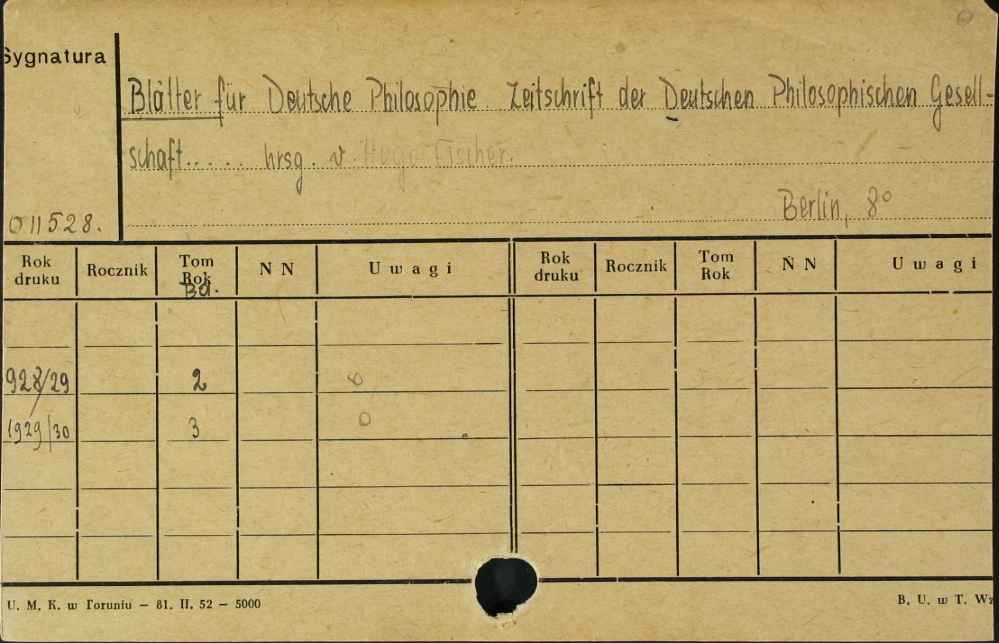 Sygnatura
Blätter für Deutsche Philosophie. Zeitschrift der Deutschen Philosophischen Gesell-
schaft..... hrsg. v. Hugo Fischer.
Berlin, 8°
011528.
Rok druku Rocznik Tom Rok Bd. N N Uwagi Rok druku Rocznik Tom Rok N N Uwagi
928/29 2 0
1929/30 3 0
U. M. K. w Toruniu — 81. II. 52 — 5000 B. U. w T. Wz